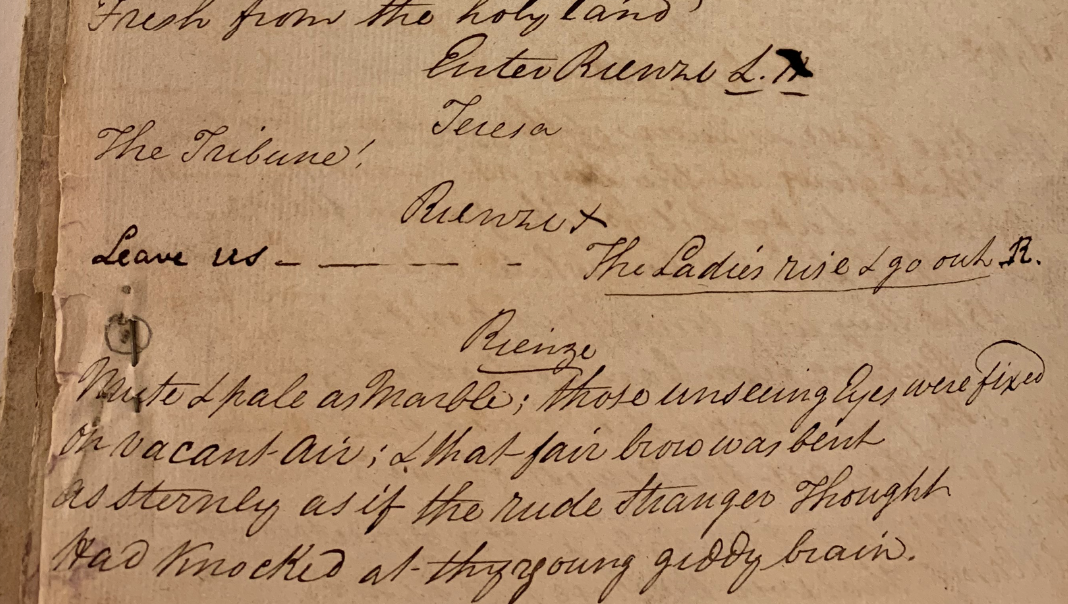 Fresh from the holy land
Enter Rienzi L.
Teresa
The Tribune!
Rienzi X
Leave us - — — — - The Ladies rise & go out R.
Rienze
Mute & pale as Marble; those unseeing Eyes were fixed
On vacant air; & that fair brow was bent
As sternly as if the rude stranger Thought
Had Knocked at thy young giddy brain.